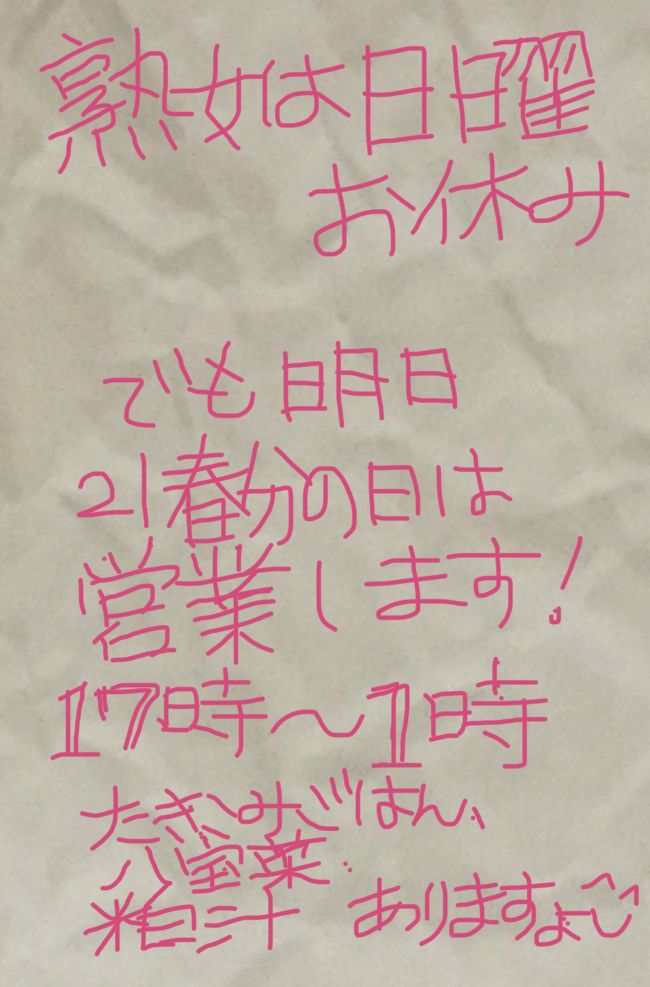 熟女は日曜
お休み
でも明日
21春分の日は
営業します!
17時〜1時
たきこみごはん、
八宝菜
粕汁 ありますよ